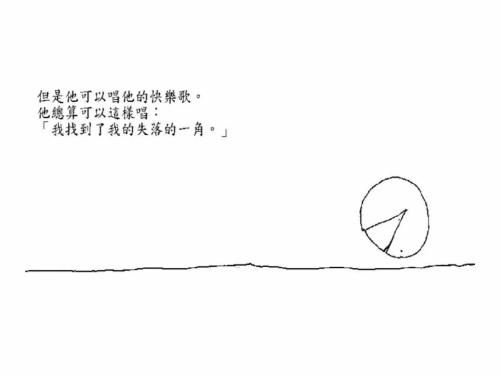 但是他可以唱他的快樂歌。
他總算可以這樣唱：
「我找到了我的失落的一角。」